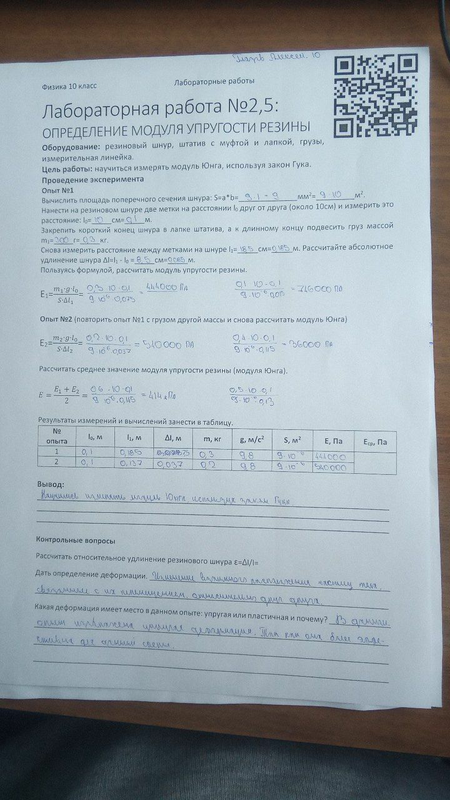 Физика 10 класс Лабораторные работы
Лабораторная работа №2,5:
ОПРЕДЕЛЕНИЕ МОДУЛЯ УПРУГОСТИ РЕЗИНЫ
Оборудование: резиновый шнур, штатив с муфтой и лапкой, грузы,
измерительная линейка.
Цель работы: научиться измерять модуль Юнга, используя закон Гука.
Проведение эксперимента
Опыт №1
Вычислить площадь поперечного сечения шнура: S=a*b= 9·1=9 мм²= 9·10 м².
Нанести на резиновом шнуре две метки на расстоянии l₀ друг от друга (около 10см) и измерить это
расстояние: l₀= 10 см= 0,1 м.
Закрепить короткий конец шнура в лапке штатива, а к длинному концу подвесить груз массой
m₁= 300 г= 0,3 кг.
Снова измерить расстояние между метками на шнуре l₁= 18,5 см= 0,185 м. Рассчитайте абсолютное
удлинение шнура Δl=l₁ - l₀ = 8,5 см= 0,085 м.
Пользуясь формулой, рассчитать модуль упругости резины.
E₁= m₁·g·l₀ / S·Δl₁ = 0,3·10·0,1 = 444000 Па
Опыт №2 (повторить опыт №1 с грузом другой массы и снова рассчитать модуль Юнга)
E₂= m₂·g·l₀ / S·Δl₂ = 0,2·10·0,1 / 9·10⁻⁶·0,037
Рассчитать среднее значение модуля упругости резины (модуля Юнга).
E = E₁ + E₂ / 2 =
Результаты измерений и вычислений занести в таблицу.
№ опыта l₀, м l₁, м Δl, м m, кг g, м/с² S, м² E, Па Eср, Па
1 0,1 0,185 0,3 9,8 9·10⁻⁶ 444000
2 0,1 0,137 0,037 0,2 9,8 9·10⁻⁶
Вывод:
Научился измерять модуль Юнга используя закон Гука
Контрольные вопросы
Рассчитать относительное удлинение резинового шнура ε=Δl/l=
Дать определение деформации. Изменение взаимного положения частиц тела
связанное с их перемещением относительно друг друга
Какая деформация имеет место в данном опыте: упругая или пластичная и почему? В данном
опыте упругая деформация. Так как она